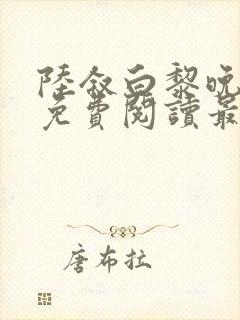 陸叙白黎晚
免費閱讀最
唐布拉